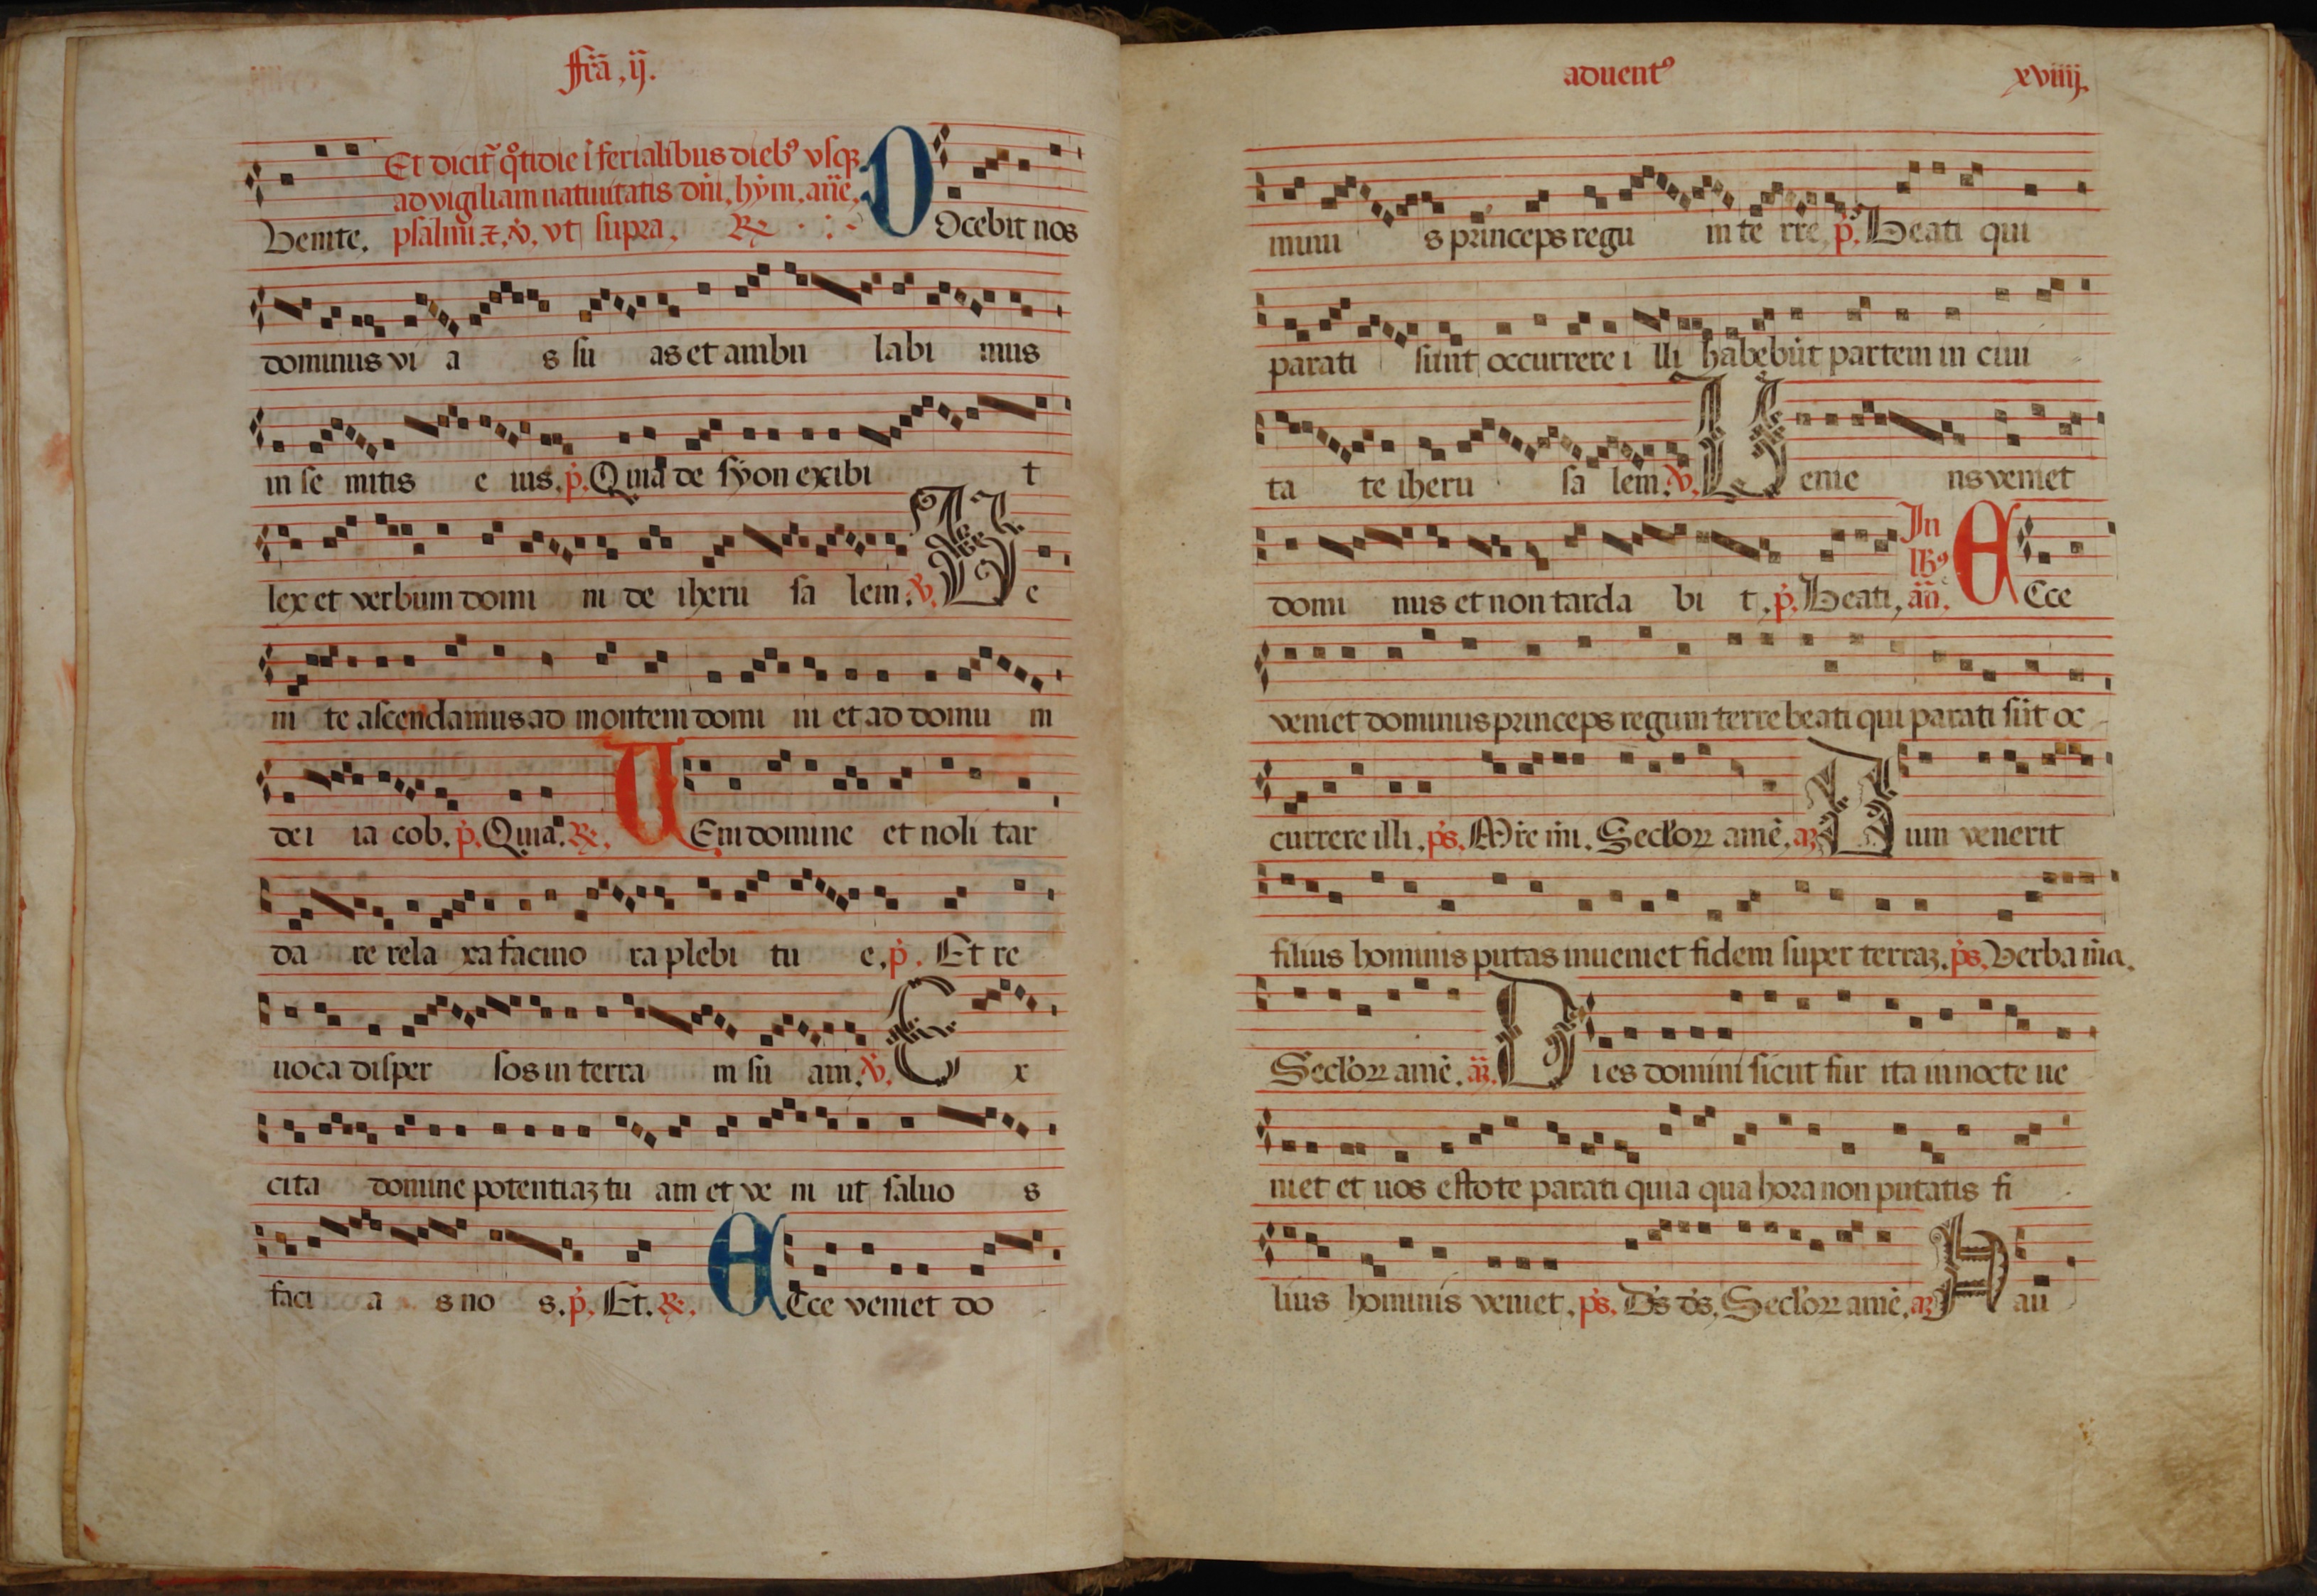 fr̃a, ij.
Et dicit̃ q̊tidie ĩ ferialibus dieb⁹ vsq̢
ad vigiliam natiuitatis dñi, hym̃, añe,
Venite. psalmi ⁊ ℣. vt supra. ℟ DOcebit nos
dominus vi a s su as et ambu labi mus
in se mitis e ius. p̃. Quia de syon exibi t
lex et verbum domi ni de iheru sa lem. ℣. Ve
ni te ascendamus ad montem domi ni et ad domu m
dei ia cob. p̃. Quia. ℟. UEni domine et noli tar
da re rela xa facino ra plebi tu e. p̃. Et re
uoca disper sos in terra m su am. ℣. Ex
cita domine potentiaꝫ tu am et ve ni ut saluo s
faci a s no s. p̃. Et. ℟. ECce veniet do
aduent⁹ xviiij.
minu s princeps regu m te rre p̃. Beati qui
parati sunt occurrere i lli habebũt partem in ciui
ta te iheru sa lem. ℣. Venie ns veniet
In
domi nus et non tarda bi t. p̃. Beati, añ. ECce
veniet dominus princeps regum terre beati qui parati sũt oc
currere illi. ps̃. Mr̃e mi. Seclõꝝ amẽ. añ Dum venerit
filius hominis putas inueniet fidem super terraꝫ. ps̃. Verba m̃a.
Seclõꝝ amẽ. añ. Dies domini sicut fur ita in nocte ue
niet et uos estote parati quia qua hora non putatis fi
lius hominis veniet. ps̃. Ds̃ ds̃. Seclõꝝ amẽ. añ Hau